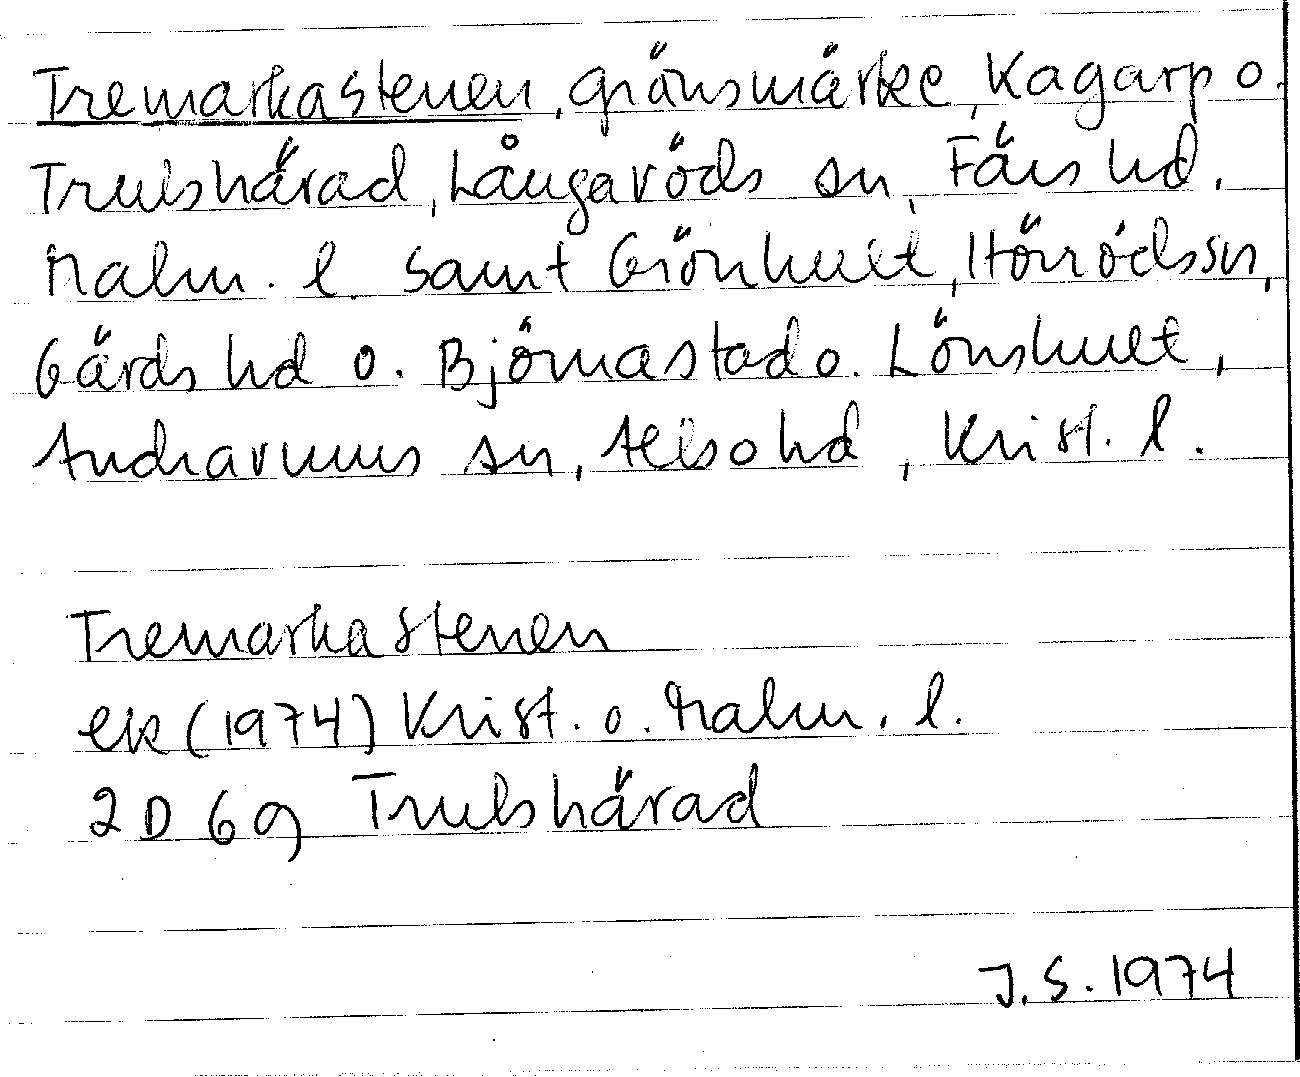 Tremarkastenen, gränsmärke, Kagarp o.
Trulshärad, Långaröds sn, Färs hd.
Malm. l. samt Grönhult, Hörröds sn,
Gärds hd o. Björnastad o. Lönshult,
Andrarums sn, Albo hd, Krist. l.
Tremarkastenen
ek (1974) Krist. o. Malm. l.
2D 6g Trulshärad
J.S. 1974